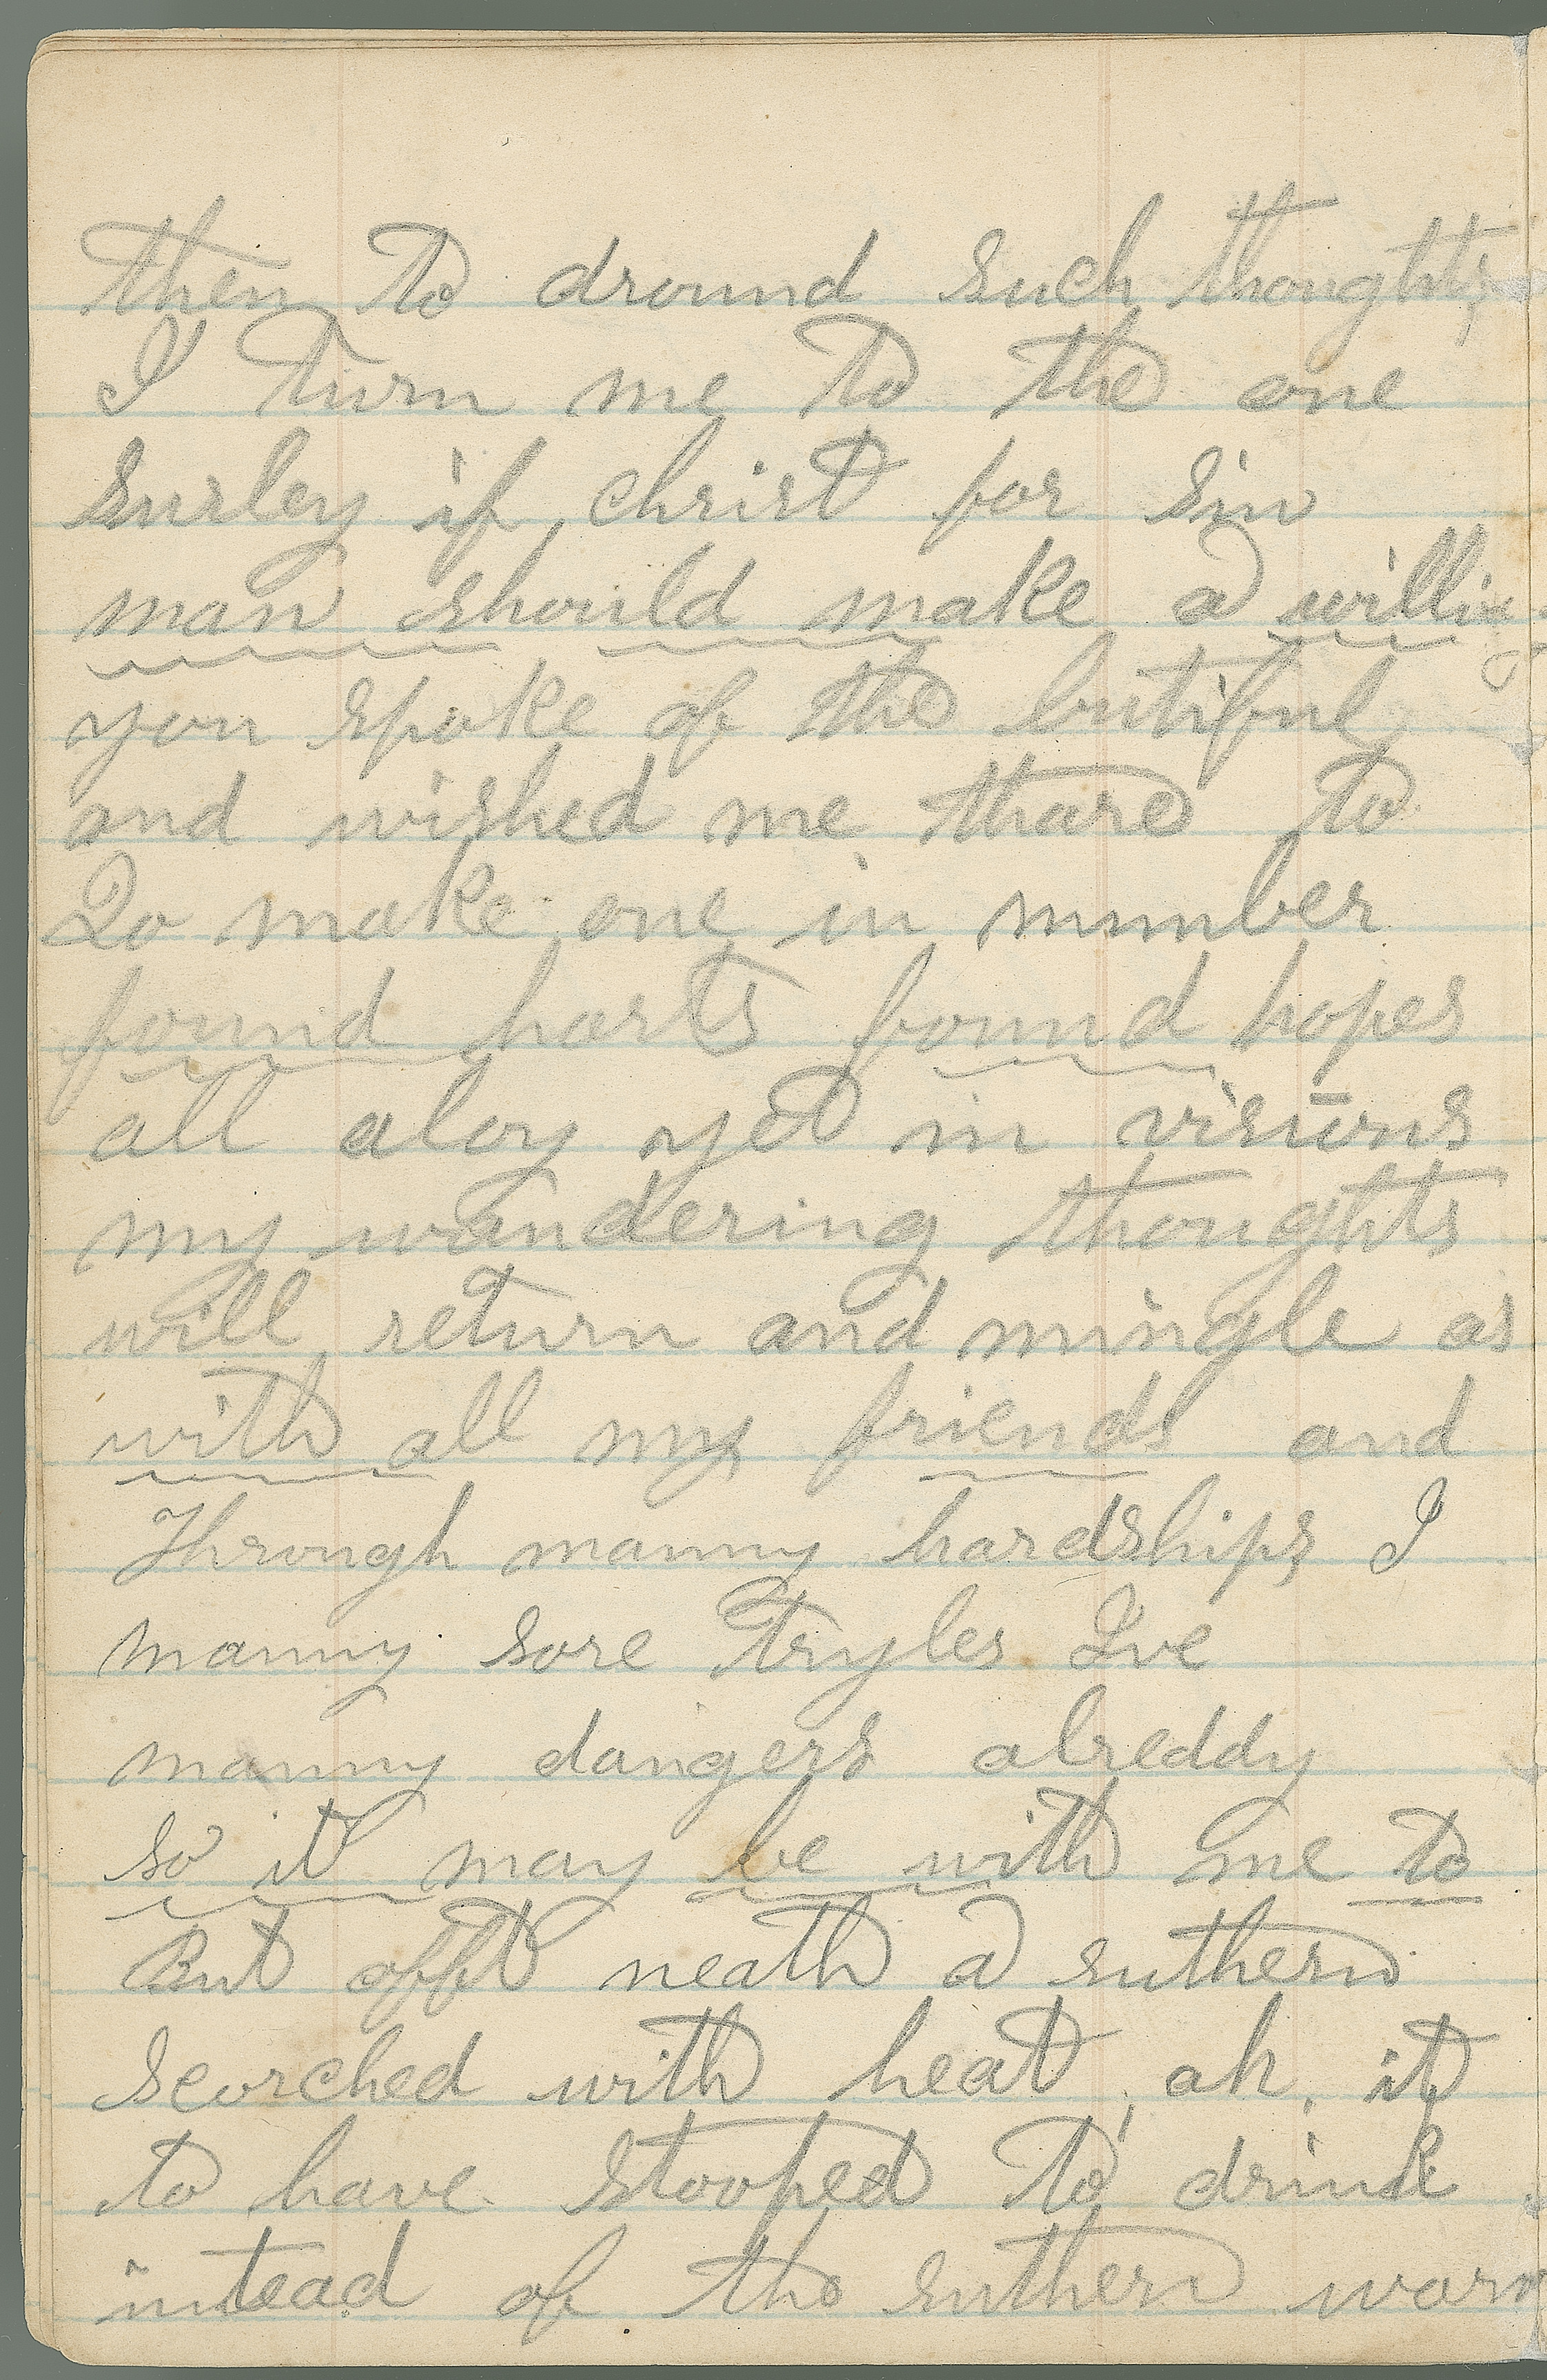 then to dround such thoughts,
I turn me to the one
Surley if christ for sin
man should make a willing
you spoke of the butiful
and wished me thare to
To make one in number
found harts found hopes
all aloy yet in visions
my wandering thoughts
will return and mingle as
with all my friends and
Through manny hardships I
manny sore tryles I've
manny dangers alreddy
so it may be with me to
But offt neath a suthern
scorched with heat, ah, it
to have stooped to drink
intead of the suthern warm